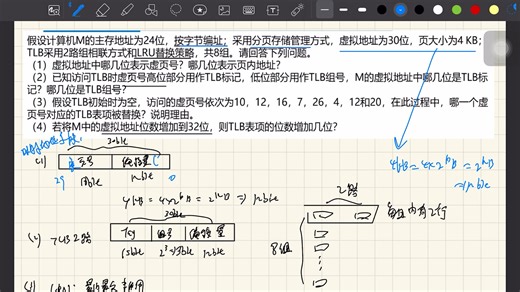 假设计算机M的主存地址为24位，按字节编址；采用分页存储管理方式，虚拟地址为30位，页大小为4 KB；
TLB采用2路组相联方式和LRU替换策略，共8组。请回答下列问题。
(1) 虚拟地址中哪几位表示虚页号？哪几位表示页内地址？
(2) 已知访问TLB时虚页号高位部分用作TLB标记，低位部分用作TLB组号，M的虚拟地址中哪几位是TLB标
记？哪几位是TLB组号？
(3) 假设TLB初始时为空，访问的虚页号依次为10，12，16，7，26，4，12和20，在此过程中，哪一个虚
页号对应的TLB表项被替换？说明理由。
(4) 若将M中的虚拟地址位数增加到32位，则TLB表项的位数增加几位？
30bit
(1)
29
0
18bit
12bit
4KB=4×2^10B=2^12B
⇒12bit
4KB=4×2^10B=2^12B ⇒ 12bit
30bit
2路
(2) TLB 2路
Tag 组号
每组内有2行
15bit 2^3⇒3bit 12bit
8组